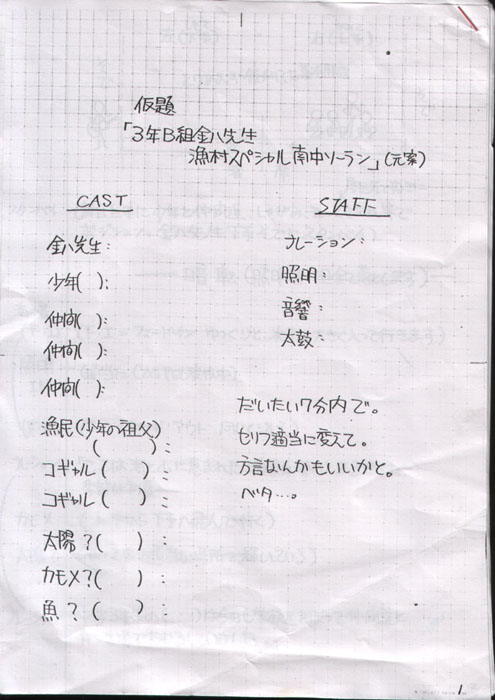 仮題
「3年B組金八先生
漁村スペシャル 南中ソーラン」(元案)
CAST
金八先生:
少年( ):
仲間( ):
仲間( ):
仲間( ):
魚民(少年の祖父)
( ):
コギャル( ):
コギャル( ):
太陽?( ):
カモメ?( ):
魚?( ):
STAFF
ナレーション:
照明:
音響:
太鼓:
だいたい7分内で。
セリフ適当に変えて。
方言なんかもいいかと。
ベタ…。
1